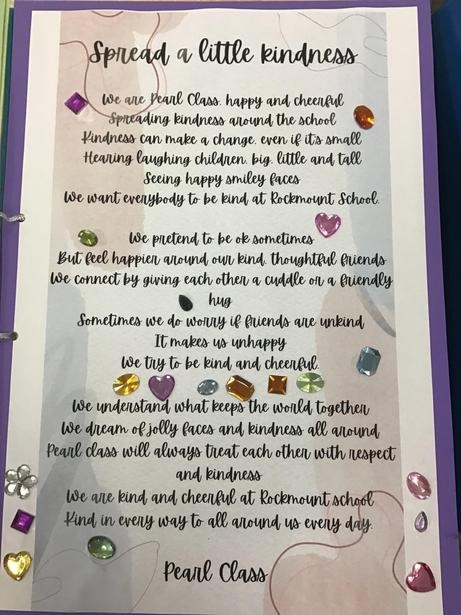 Spread a little kindness
We are Pearl Class, happy and cheerful
Spreading kindness around the school
Kindness can make a change, even if it's small
Hearing laughing children, big, little and tall
Seeing happy smiley faces
We want everybody to be kind at Rockmount School.
We pretend to be ok sometimes
But feel happier around our kind, thoughtful friends
We connect by giving each other a cuddle or a friendly
hug
Sometimes we do worry if friends are unkind
It makes us unhappy
We try to be kind and cheerful.
We understand what keeps the world together
We dream of jolly faces and kindness all around
Pearl class will always treat each other with respect
and kindness
We are kind and cheerful at Rockmount school
Kind in every way to all around us every day.
Pearl Class